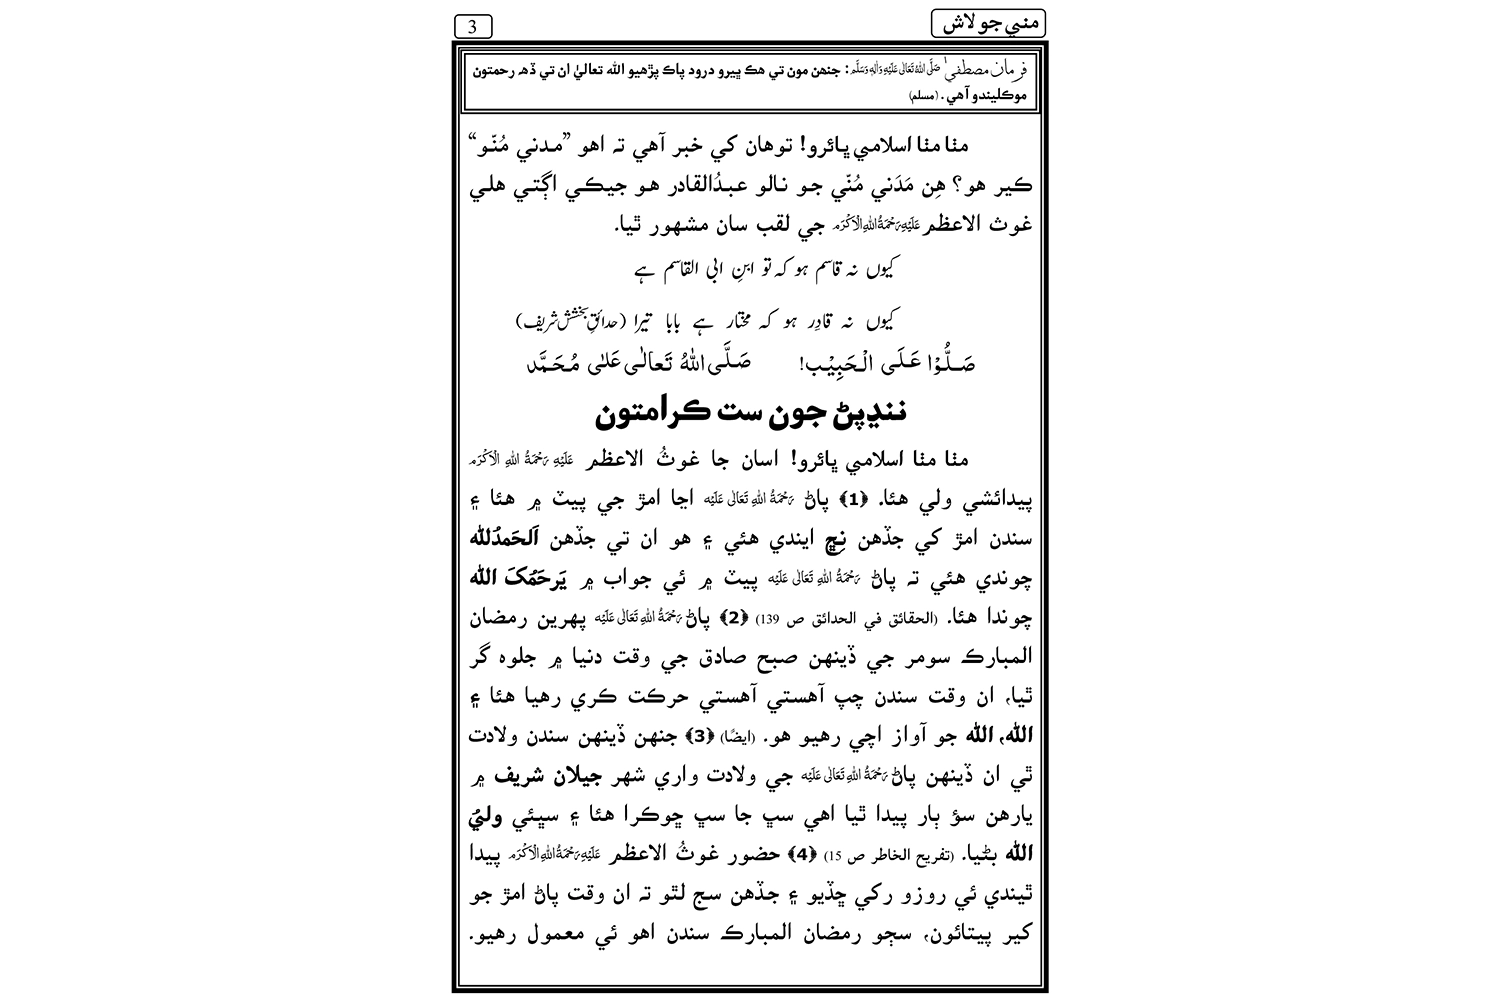 مئي جو لاش
3
فرمان مصطفیٰ صَلَّى اللهُ تَعَالٰى عَلَيْهِ وَاٰلِهٖ وَسَلَّم: جنهن مون تي هڪ ڀيرو درود پاڪ پڙهيو الله تعاليٰ ان تي ڏهه رحمتون
موڪليندو آهي. (مسلم)
مٺا مٺا اسلامي ڀائرو! توهان کي خبر آهي ته اهو ”مدني مُنّو“
ڪير هو؟ هِن مَدَني مُنّي جو نالو عبدُالقادر هو جيڪي اڳتي هلي
غوث الاعظم عَلَيْهِ رَحْمَةُ اللهِ الْاَكْرَم جي لقب سان مشهور ٿيا.
کیوں نہ قاسم ہو کہ تو ابنِ ابی القاسم ہے
کیوں نہ قادِر ہو کہ مختار ہے بابا تیرا (حدائقِ بخشش شریف)
صَلُّوْا عَلَى الْحَبِيْب! صَلَّى اللهُ تَعالٰى عَلٰى مُحَمَّد
ننڍپڻ جون ست ڪرامتون
مٺا مٺا اسلامي ڀائرو! اسان جا غوثُ الاعظم عَلَيْهِ رَحْمَةُ اللهِ الْاَكْرَم
پيدائشي ولي هئا. ﴿1﴾ پاڻ رَحْمَةُ اللهِ تَعَالٰى عَلَيْه اڃا امڙ جي پيٽ ۾ هئا ۽
سندن امڙ کي جڏهن نِڇ ايندي هئي ۽ هو ان تي جڏهن اَلحَمدُلله
چوندي هئي ته پاڻ رَحْمَةُ اللهِ تَعَالٰى عَلَيْه پيٽ ۾ ئي جواب ۾ يَرحَمُكَ الله
چوندا هئا. (الحقائق في الحدائق ص 139) ﴿2﴾ پاڻ رَحْمَةُ اللهِ تَعَالٰى عَلَيْه پهرين رمضان
المبارڪ سومر جي ڏينهن صبح صادق جي وقت دنيا ۾ جلوه گر
ٿيا، ان وقت سندن چپ آهستي آهستي حرڪت ڪري رهيا هئا ۽
الله، الله جو آواز اچي رهيو هو. (ايضًا) ﴿3﴾ جنهن ڏينهن سندن ولادت
ٿي ان ڏينهن پاڻ رَحْمَةُ اللهِ تَعَالٰى عَلَيْه جي ولادت واري شهر جيلان شريف ۾
يارهن سؤ ٻار پيدا ٿيا اهي سڀ جا سڀ ڇوڪرا هئا ۽ سڀئي وليُ
الله بڻيا. (تفريح الخاطر ص 15) ﴿4﴾ حضور غوثُ الاعظم عَلَيْهِ رَحْمَةُ اللهِ الْاَكْرَم پيدا
ٿيندي ئي روزو رکي ڇڏيو ۽ جڏهن سج لٿو ته ان وقت پاڻ امڙ جو
کير پيتائون، سڄو رمضان المبارڪ سندن اهو ئي معمول رهيو.